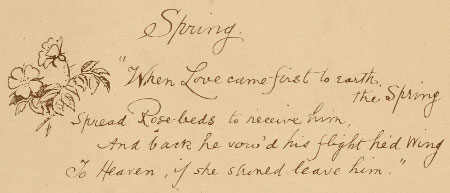 Spring.
"When Love came first to earth,
the Spring
Spread Rose-beds to receive him,
And back he vow'd his flight he'd wing
To Heaven, if she should leave him."